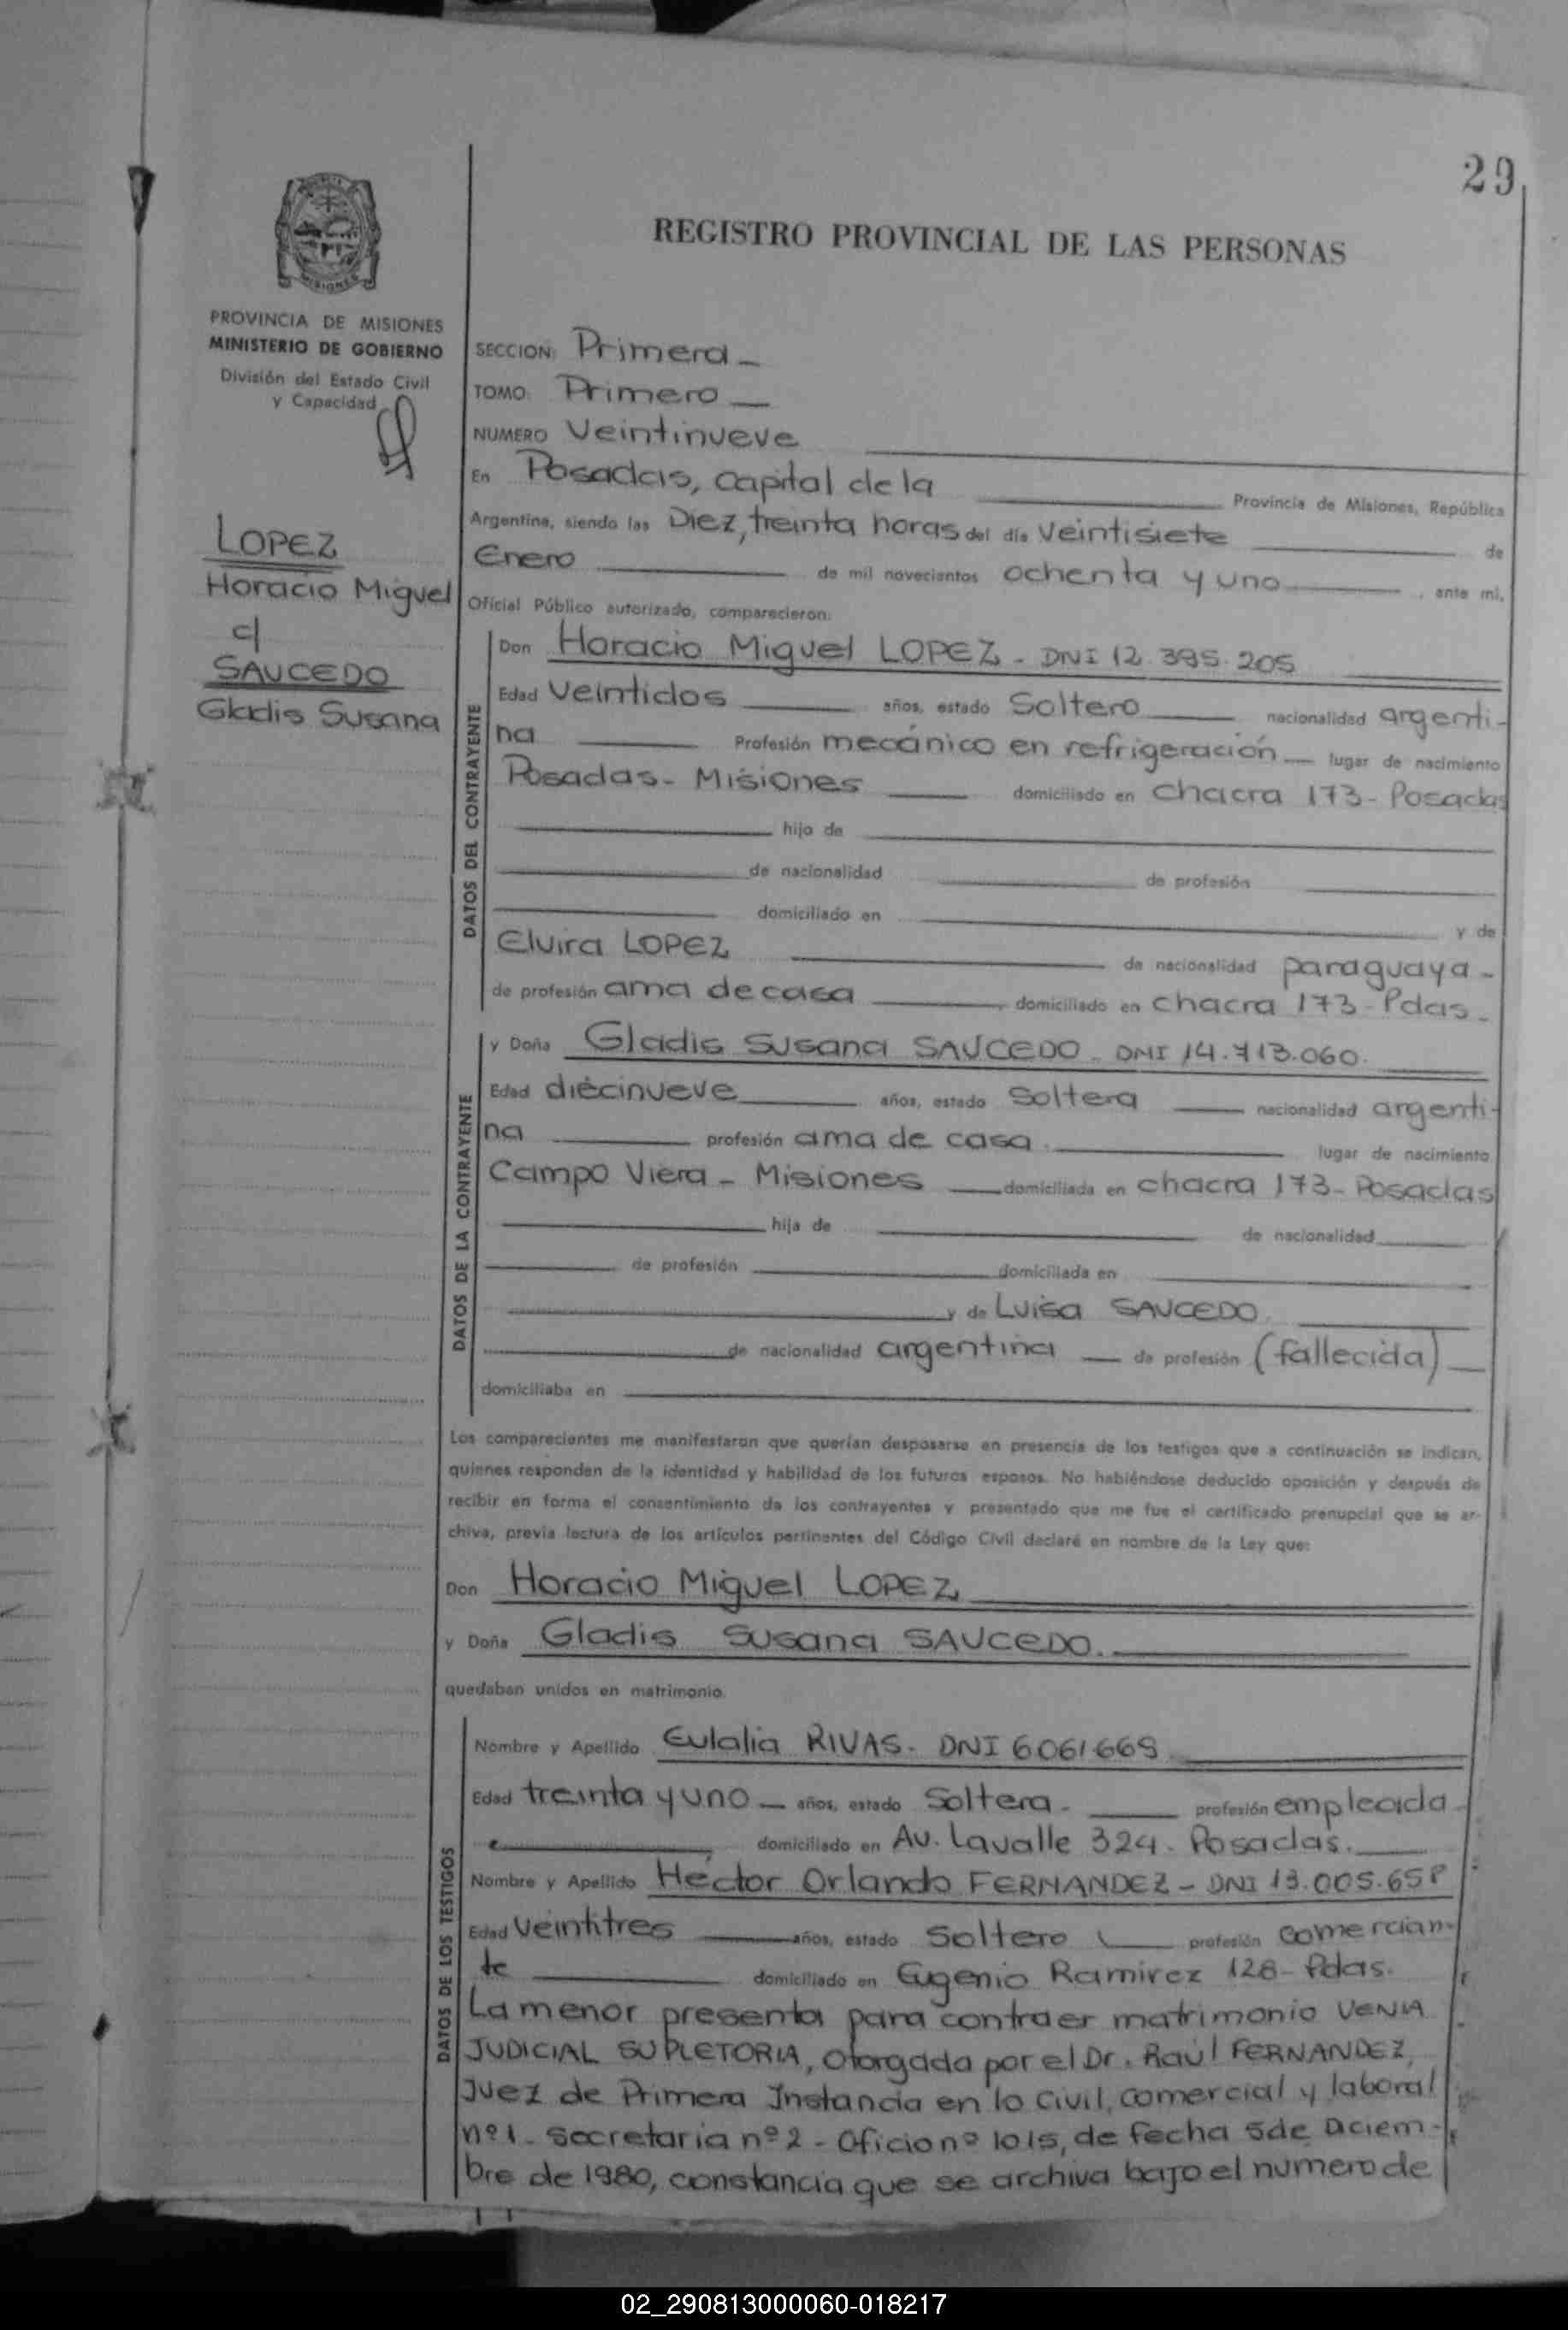 29
REGISTRO PROVINCIAL DE LAS PERSONAS
MISIONES
PROVINCIA DE MISIONES
MINISTERIO DE GOBIERNO
División del Estado Civil
y Capacidad
LOPEZ
Horacio Miguel
c/
SAUCEDO
Gladis Susana
SECCION: Primera _
TOMO: Primero _
NUMERO Veintinueve
En Posadas, capital de la Provincia de Misiones, República
Argentina, siendo las Diez, treinta horas del día Veintisiete de
Enero de mil novecientos ochenta y uno , ante mi,
Oficial Público autorizado, comparecieron:
DATOS DEL CONTRAYENTE
Don Horacio Miguel LOPEZ - DNI 12.395.205
Edad Veintidos años, estado Soltero nacionalidad argenti-
na Profesión mecánico en refrigeración lugar de nacimiento
Posadas - Misiones domiciliado en chacra 173 - Posadas
hijo de
de nacionalidad de profesión
domiciliado en y de
Elvira LOPEZ de nacionalidad paraguaya -
de profesión ama de casa , domiciliado en chacra 173 - Pdas -
DATOS DE LA CONTRAYENTE
y Doña Gladis Susana SAUCEDO - DNI 14.713.060.
Edad diécinueve años, estado Soltera nacionalidad argenti-
na profesión ama de casa. lugar de nacimiento
Campo Viera - Misiones domiciliada en chacra 173 - Posadas
hija de de nacionalidad
de profesión domiciliada en
y de Luisa SAUCEDO
de nacionalidad argentina de profesión (fallecida)
domiciliaba en
Los comparecientes me manifestaron que querían desposarse en presencia de los testigos que a continuación se indican,
quienes responden de la identidad y habilidad de los futuros esposos. No habiéndose deducido oposición y después de
recibir en forma el consentimiento de los contrayentes y presentado que me fue el certificado prenupcial que se ar-
chiva, previa lectura de los artículos pertinentes del Código Civil declaré en nombre de la Ley que:
Don Horacio Miguel LOPEZ
y Doña Gladis Susana SAUCEDO.
quedaban unidos en matrimonio.
DATOS DE LOS TESTIGOS
Nombre y Apellido Eulalia RIVAS - DNI 6061669
Edad treinta y uno años, estado Soltera - profesión empleada -
domiciliado en Av. Lavalle 324 - Posadas.
Nombre y Apellido Héctor Orlando FERNANDEZ - DNI 13.005.658
Edad Veintitres años, estado Soltero profesión comercian-
te domiciliado en Eugenio Ramirez 128 - Pdas.
La menor presenta para contraer matrimonio VENIA
JUDICIAL SUPLETORIA, otorgada por el Dr. Raúl FERNANDEZ,
Juez de Primera Instancia en lo Civil, comercial y laboral
nº 1 - Secretaria nº 2 - Oficio nº 1015, de fecha 5 de Diciem-
bre de 1980, constancia que se archiva bajo el numero de
02_290813000060-018217